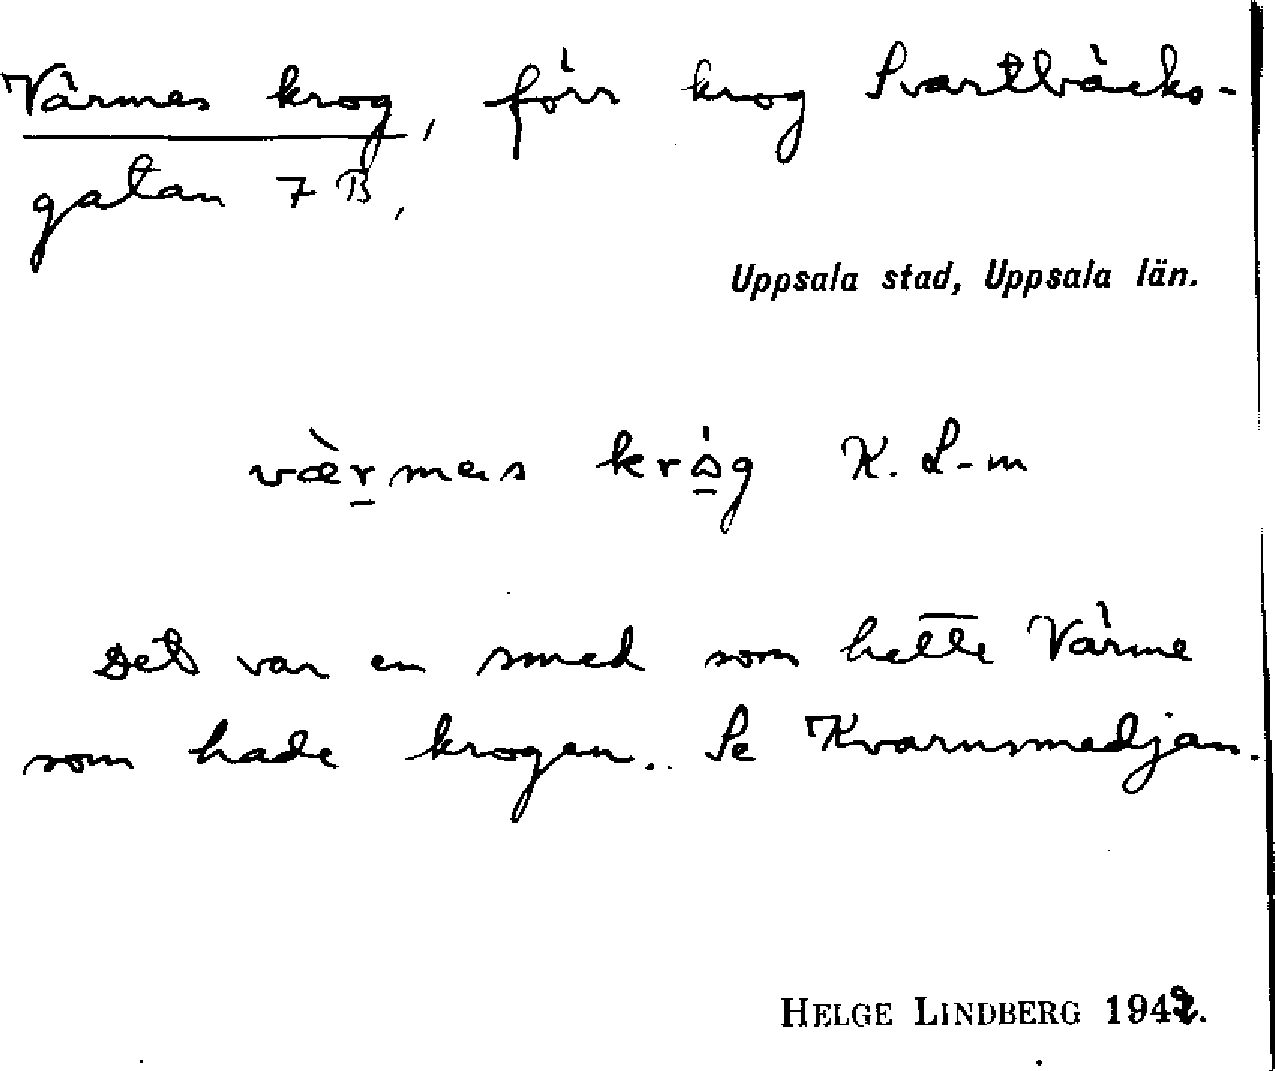 Värmes krog, förr krog Svartbäcks-
gatan 7 B,
Uppsala stad, Uppsala län.
væ̀r̠mes krɷ̠́g K. L-m
Det var en smed som hette Värme
som hade krogen. Se Kvarnsmedjan.
HELGE LINDBERG 1942.